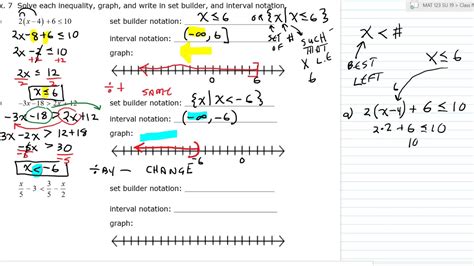 x. 7  Solve each inequality, graph, and write in set builder, and interval notation.
2(x − 4) + 6 ≤ 10
2x-8+6 ≤ 10
2x-2 ≤ 10
+2 +2
2x ≤ 12
2 2
x ≤ 6
set builder notation: x ≤ 6 or {x|x ≤ 6}
interval notation: (-∞, 6]
graph:
6
SET OF #
SUCH THAT
X L.E 6
÷ + SAME
−3x − 18 > 2x + 12
-3x-18 > 2x+12
-3x-2x > 12+18
-5x > 30
-5 -5
x < -6
set builder notation: {x|x<-6}
interval notation: (-∞, -6)
graph:
-6
0
÷ BY — CHANGE
x/5 − 3 < 3/5 − x/2
set builder notation:
interval notation:
graph:
MAT 123 SU 19 > Class
x < #
BEST LEFT
x ≤ 6
6
a) 2(x-4)+6 ≤ 10
2·2+6 ≤ 10
10